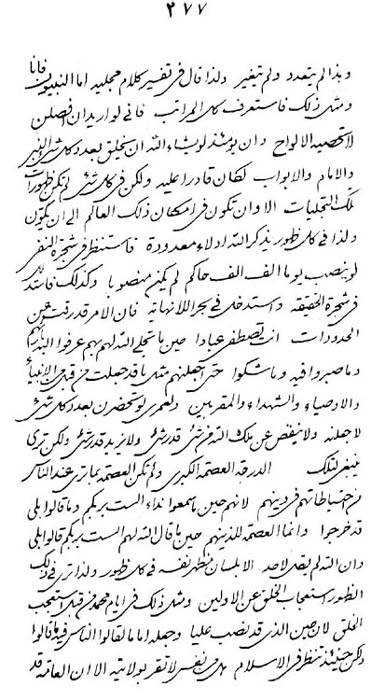 ٢٧٧
وبذا لم يتعدد ولم تيغير ولذا قال في تفسير كلام مجليه اما النبيون فانا
ومثل ذلك فاستعرف كل المراتب فاني لو اريد ان افصلن
لا تحصيه الالواح وان يومئذ لو شاء الله ان يخلق بعدد كل شئ النبي
والامام والابواب لكان قادرا عليه ولكن في كل شئ لم يكن ظهورات
تلك التجليات الا وان تكون في امكان ذلك العالم الى ان يكون
ولذا في كل ظهور يذكر الله ادلاء معدودة فاستنظر في شجرة النفي
لو ينصب يوما الف الف حاكم لم يكن منصوبا وكذلك فاشهد
في شجرة الحقيقة واستدخل في بحر اللانهاية فان الامر قد رقت عن
الحدودات انت لتصطفي عبادا حين ما تتجلى الله لهم بهم عرفوا الله ربهم
وما صبروا فيه وما شكوا حتى اجعلنهم مثل ما قد جعلت من قبل من الانبياء
والاوصياء والشهداء والمقربين ولعمري لو تستحضرن بعدد كل شئ
لاجعلنه ولا ينقص عن ملك الله من شئ قدر شئ ولا يزيد قدر شئ ولكن ترى
ينبغي لتلك الدرقة العصمة الكبرى ولم تكن العصمة بما ترى عند الناس
من احتياطاتهم في دينهم لانهم حين ما سمعوا نداء الست بربكم وما قالوا بلى
قد خرجوا وانما العصمة للذينهم حين ما قال الله لهم الست بربكم قالوا بلى
وان الله لم يقل لاحد الا بلسان مظهر نفسه في كل ظهور ولذا ترى في ذلك
الظهور استعجاب الخلق عن الاولين ومثل ذلك في ايام محمد من قبل استعجب
الخلق لان حين الذي قد نصب عليا وجعله اماما لقالوا الناس فيه ما قالوا
ولكن حينئذ تنظر في الاسلام من نفس لا تقر بولايته الا ان العامة قد